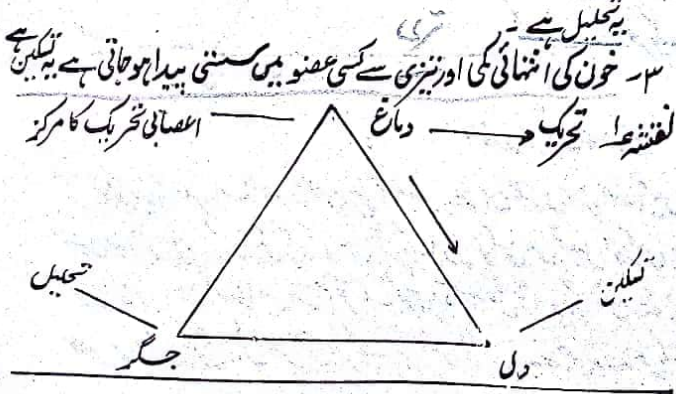 یہ تحلیل ہے ۔
۳۔ خون کی انتہائی کمی اور تیزی سے کسی عضو میں سستی پیدا ہو جاتی ہے یہ تسکین ہے
نقشہ ۱ تحریک دماغ اعصابی تحریک کا مرکز
تسکین تحلیل
دل جگر